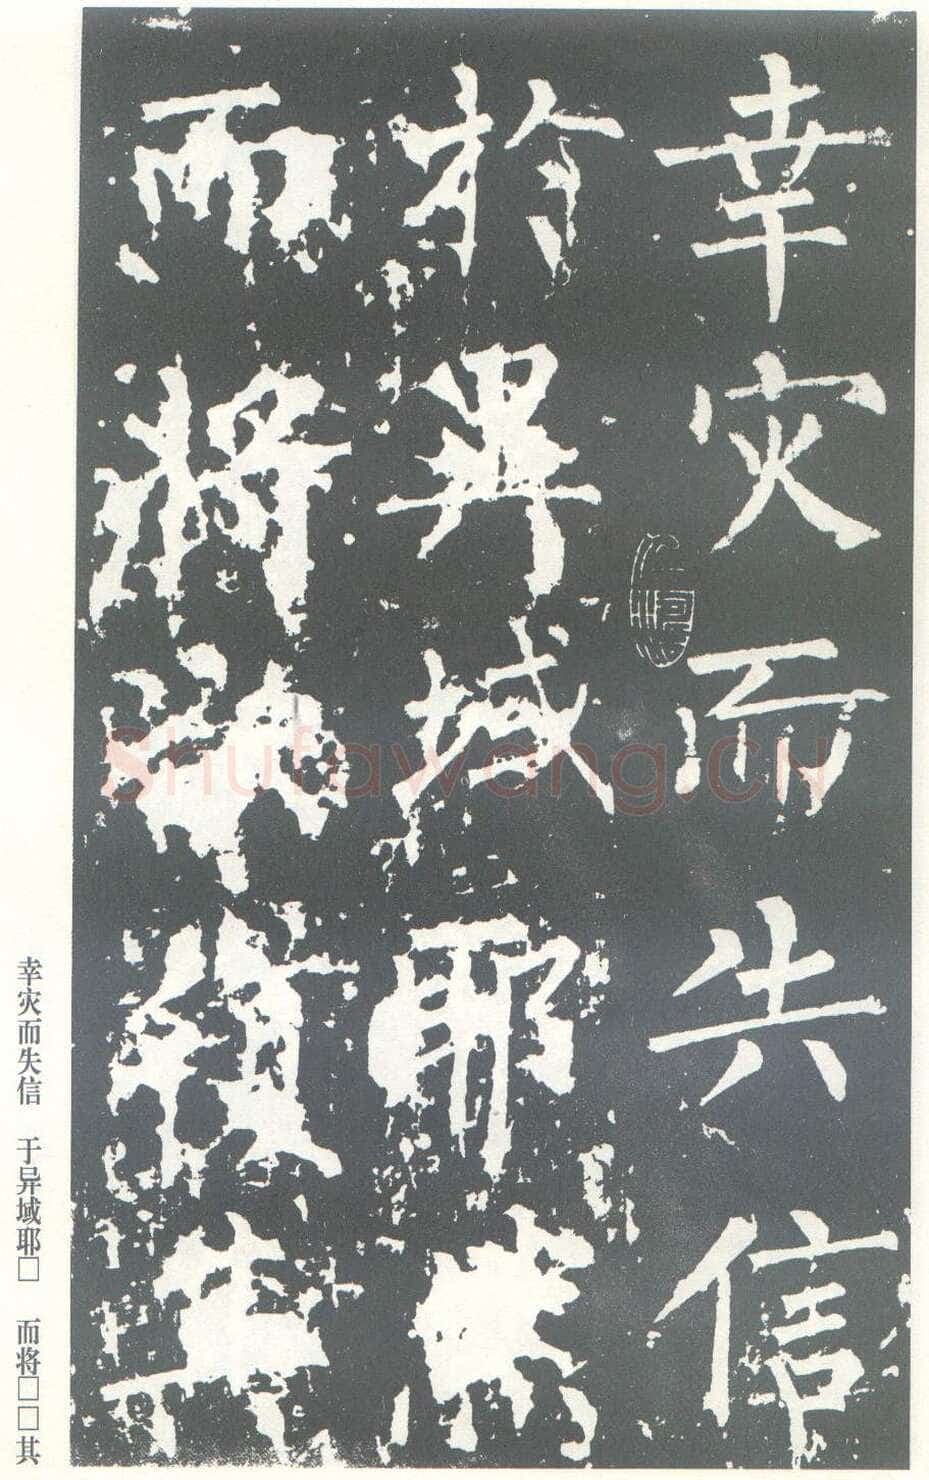 幸灾而失信
於異域耶
而將復其
幸灾而失信 于异域耶□ 而将□□其
Shufawang.CN